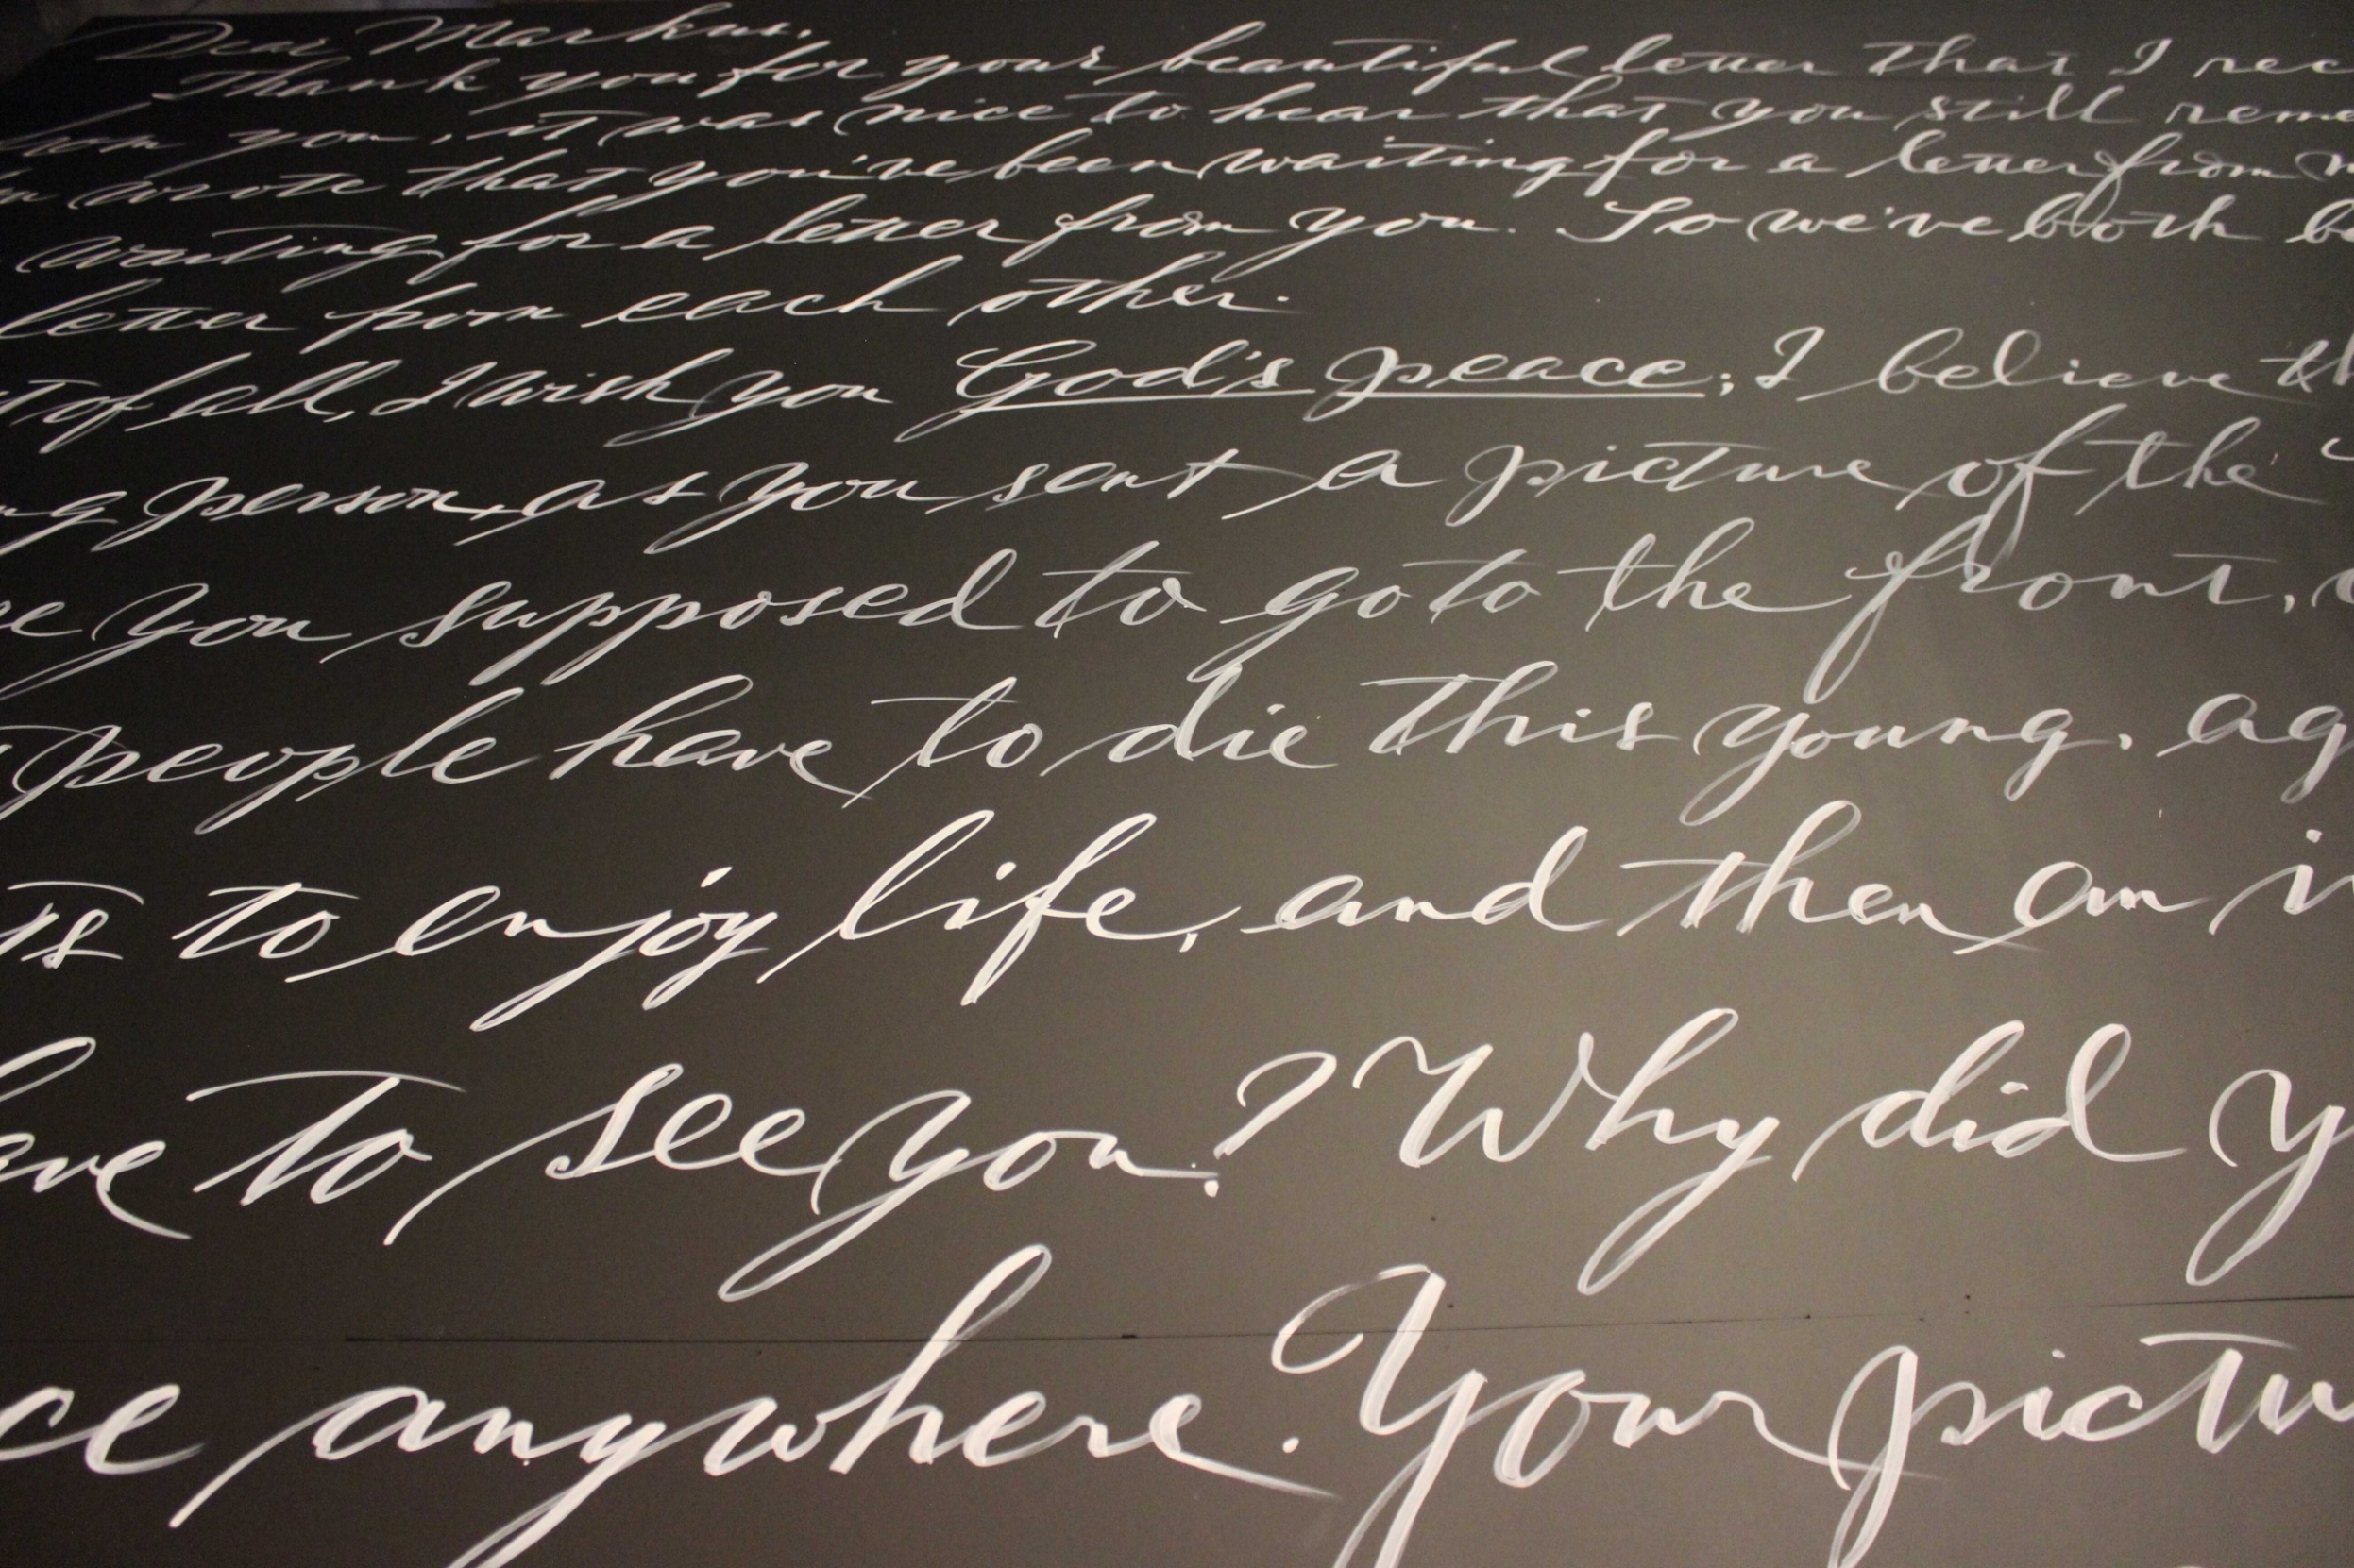 Dear Markus,
Thank you for your beautiful letter that I rec
from you, it was nice to hear that you still reme
wrote that you've been waiting for a letter from m
waiting for a letter from you. So we've both be
letter from each other.
t of all, I wish you God's peace; I believe th
ng person, as you sent a picture of the
re you supposed to go to the front,
people have to die this young. ag
ts to enjoy life, and then an i
ave to see you? Why did y
ce anywhere. Your pictu